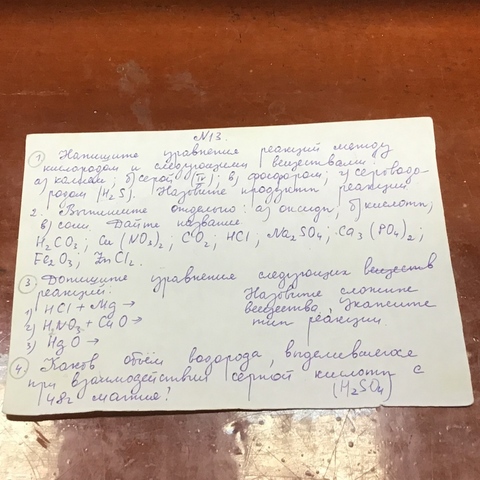 N13.
① Напишите уравнения реакций между
кислородом и следующими веществами:
а) калием; б) серой (IV); в) фосфором; г) серово­до-
родом (H₂S). Назовите продукты реакции
2. Выпишите отдельно: а) оксиды, б) кислоты,
в) соли. Дайте название
H₂CO₃; Cu(NO₃)₂; CO₂; HCl; Na₂SO₄; Ca₃(PO₄)₂;
Fe₂O₃; ZnCl₂.
③ Допишите уравнения следующих веществ
реакций. Назовите сложные
1) HCl + Mg → вещества, укажите
2) HNO₃ + CuO → тип реакции.
3) HgO →
④ Каков объём водорода, выделившегося
при взаимодействии серной кислоты с
48г магния? (H₂SO₄)